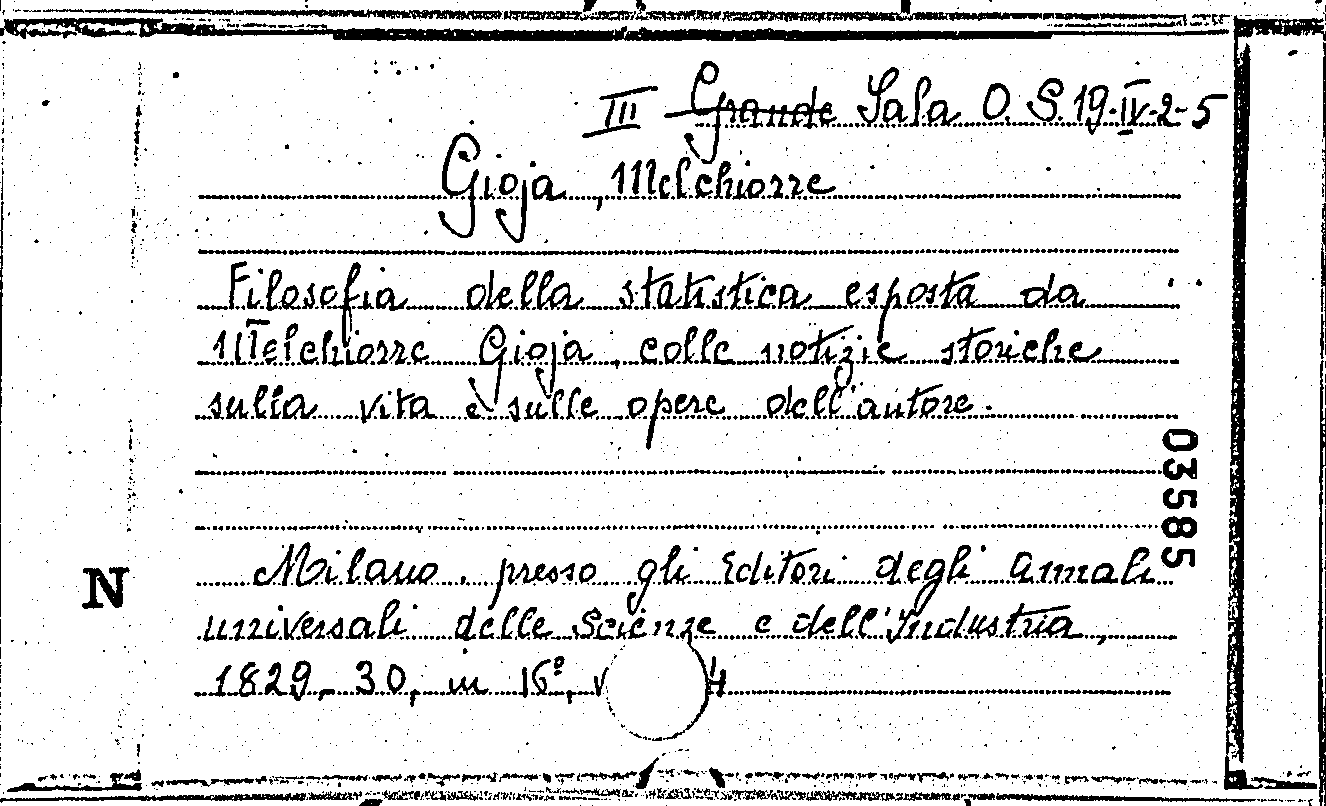 III Grande Sala O. S. 19-IV-2-5
Gioja, Melchiorre
Filosofia della statistica esposta da
Melchiorre Gioja, colle notizie storiche
sulla vita e sulle opere dell'autore.
03585
Milano. presso gli Editori degli Annali
N
universali delle Scienze e dell'Industria,
1829-30, in 16°, v 4